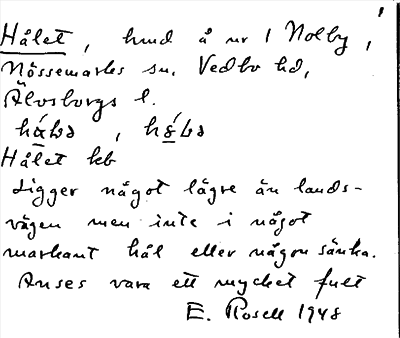 Hålet, hmd å nr 1 Nolby,
Nössemarks sn. Vedbo hd,
Älvsborgs l.
Hålet kb
Ligger något lägre än lands-
vägen men inte i något
markant hål eller någon sänka.
Anses vara ett mycket fult
E. Rosell 1948